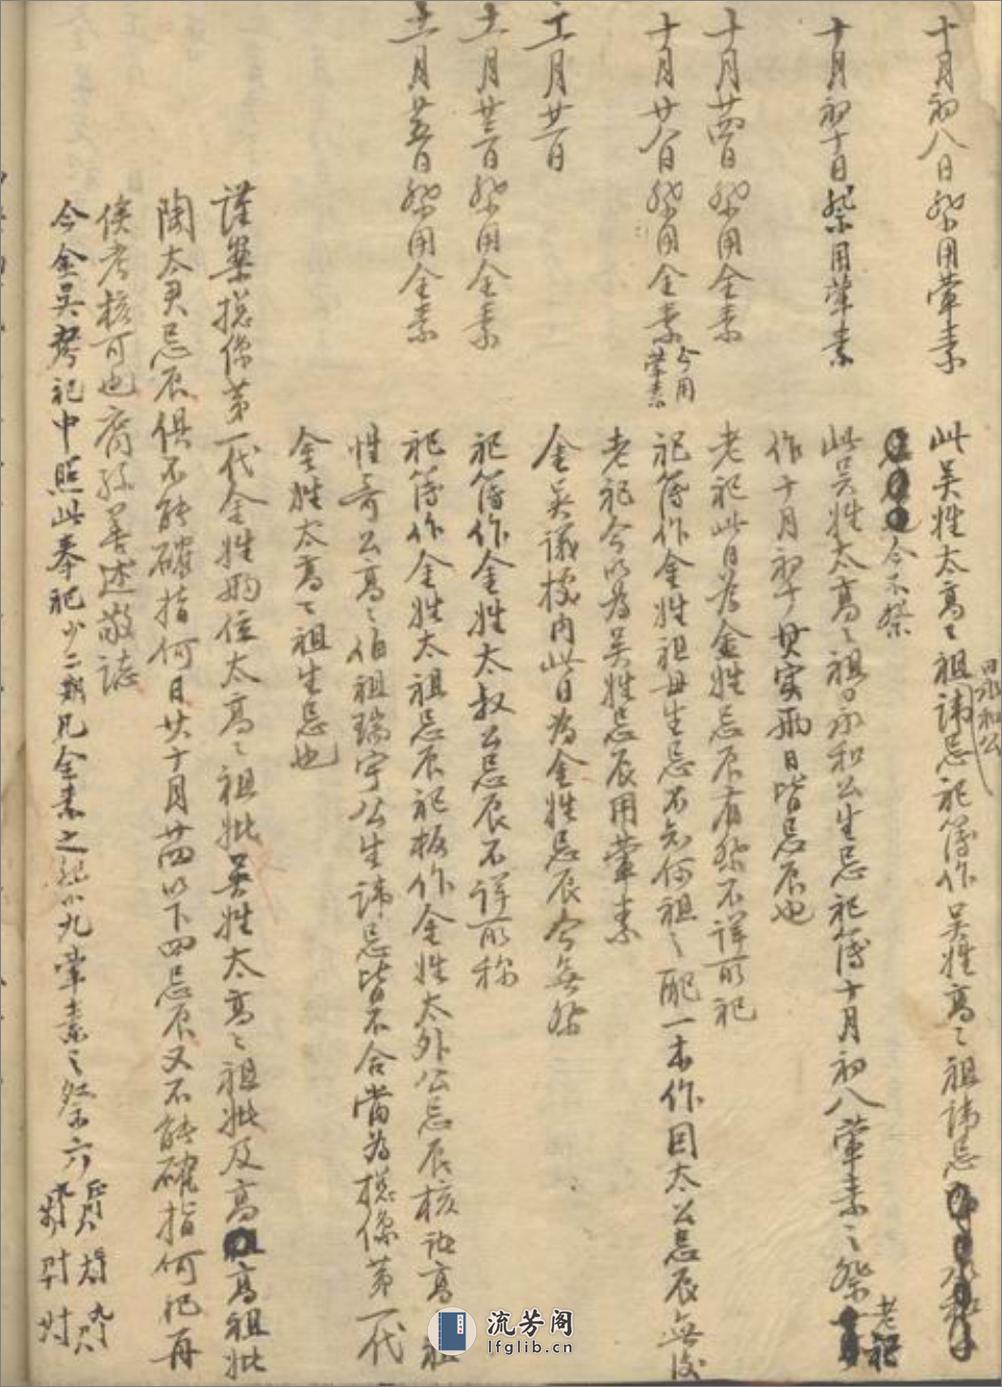 十月初八日祭用葷素
此吴姓太高々祖諱忌祀簿作吴姓高々祖諱忌
曰永和公
今不祭
十月初十日祭用葷素
此吴姓太高々祖永和公生忌祀簿十月初八葷素之祭
老祀
作十月初十日其实兩日皆忌辰也
十月廿四日祭用全素
老祀此日为金姓忌辰有祭不詳所祀
十月廿八日祭用全素
今用葷素
祀簿作金姓祖母生忌不知何祖之配一本作因太公忌辰無後
老祀今以为吴姓忌辰用葷素
十一月廿一日
金吴議據内此日为金姓忌辰今無祭
十一月廿三日祭用全素
祀簿作金姓太叔公忌辰不詳所称
十一月廿五日祭用全素
祀簿作金姓太祖忌辰祀板作金姓太外公忌辰核诸高々祖
性奇公高々伯祖瑞宇公生諱忌皆不合當为總像第一代
金姓太高々祖生忌也
謹案總像第一代金姓兩位太高々祖妣吴姓太高々祖妣及高高祖妣
陶太君忌辰俱不能確指何日廿十月廿四以下四忌辰又不能確指何祀再
俟考核可也裔孫善述敬誌
今金吴祭祀中照此奉祀少二期凡全素之祀八九葷素之祭六